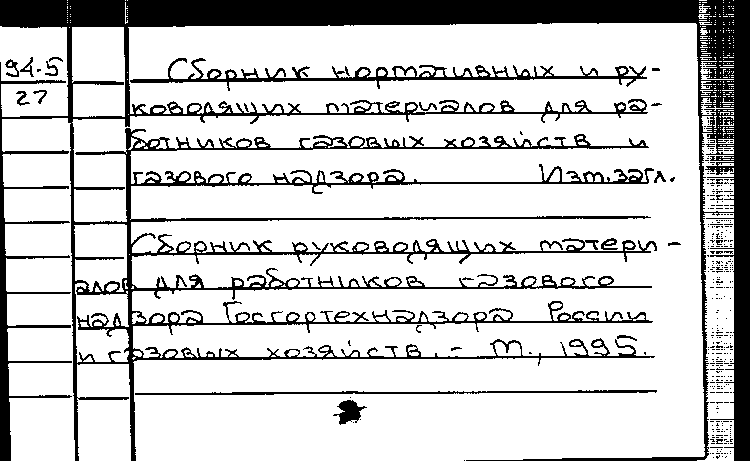 94-5
27
Сборник нормативных и ру-
ководящих материалов для ра-
ботников газовых хозяйств и
газового надзора. Изм.загл.
Сборник руководящих матери-
алов для работников газового
надзора Госгортехнадзора России
и газовых хозяйств. - М., 1995.